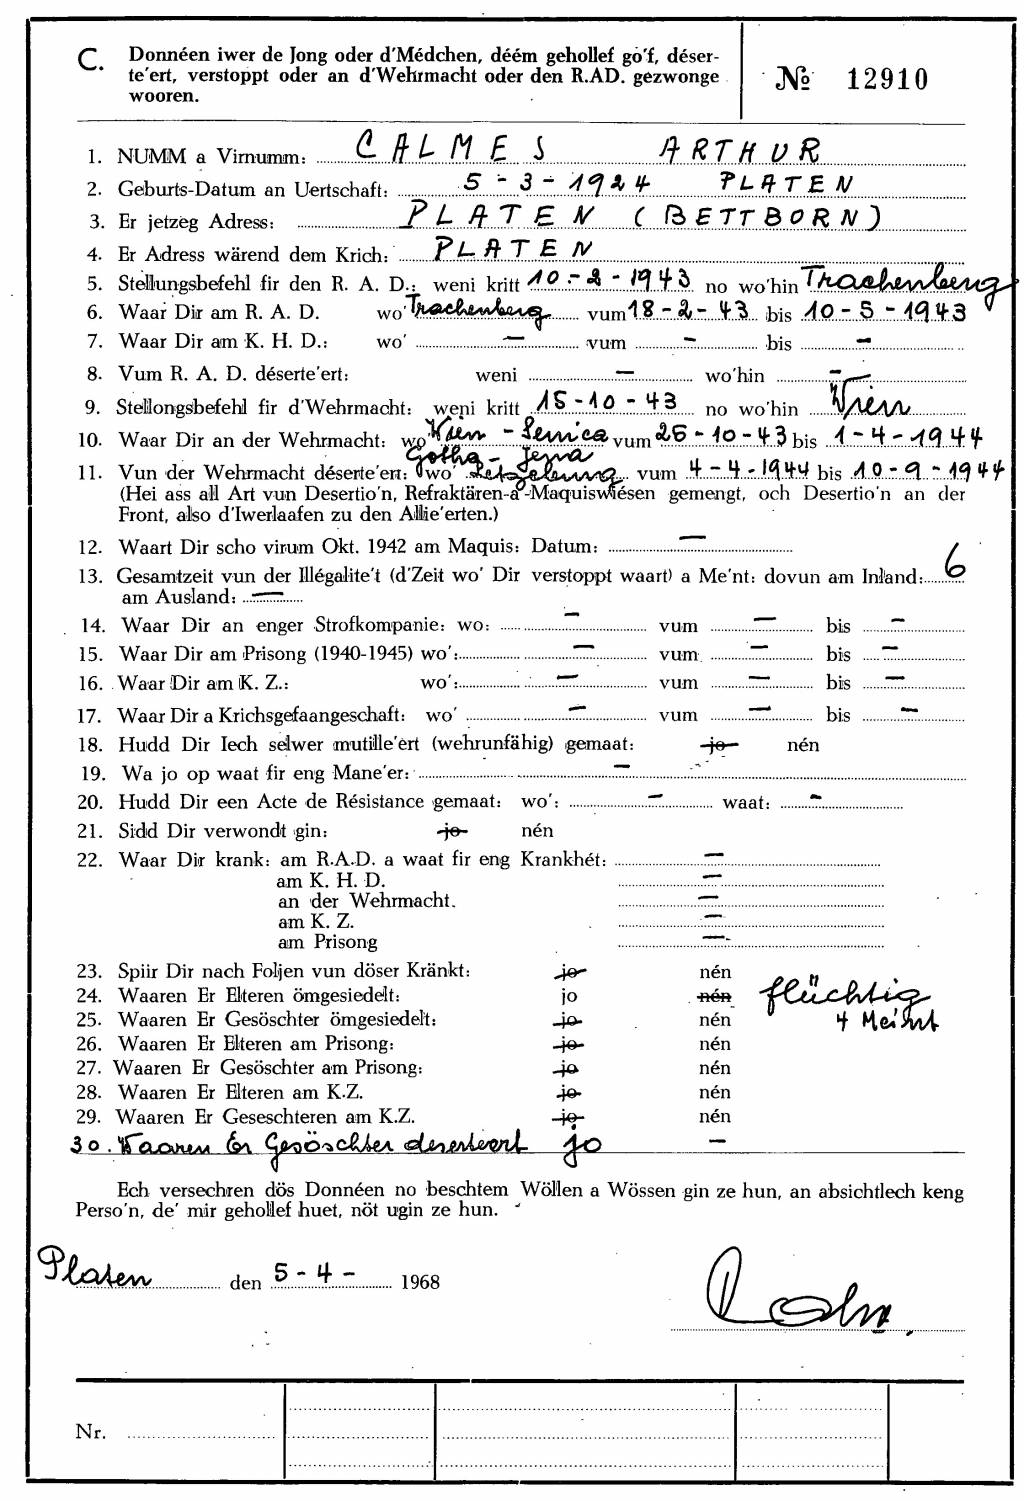 C. Donnéen iwer de Jong oder d'Médchen, déém gehollef go'f, déser-
te'ert, verstoppt oder an d'Wehrmacht oder den R.AD. gezwonge
wooren.
№ 12910
1. NUMM a Virnumm: CALMES ARTHUR
2. Geburts-Datum an Uertschaft: 5-3-1924 PLATEN
3. Er jetzeg Adress: PLATEN (BETTBORN)
4. Er Adress wärend dem Krich: PLATEN
5. Stellungsbefehl fir den R. A. D.: weni kritt 10-2-1943 no wo'hin Trachenberg
6. Waar Dir am R. A. D. wo' Trachenberg vum 18-2-43 bis 10-5-1943
7. Waar Dir am K. H. D.: wo' — vum — bis —
8. Vum R. A. D. déserte'ert: weni — wo'hin —
9. Stellongsbefehl fir d'Wehrmacht: weni kritt 15-10-43 no wo'hin Wien
10. Waar Dir an der Wehrmacht: wo Wien - Senica vum 25-10-43 bis 1-4-1944
Gotha - Jena
11. Vun der Wehrmacht déserte'ert: wo' Letzeburg vum 4-4-1944 bis 10-9-1944
(Hei ass all Art vun Desertio'n, Refraktären-a -Maquiswiésen gemengt, och Desertio'n an der
Front, also d'Iwerlaafen zu den Allie'erten.)
12. Waart Dir scho virum Okt. 1942 am Maquis: Datum: —
13. Gesamtzeit vun der Illégalite't (d'Zeit wo' Dir verstoppt waart) a Me'nt: dovun am Inland: 6
am Ausland: —
14. Waar Dir an enger Strofkompanie: wo: — vum — bis —
15. Waar Dir am Prisong (1940-1945) wo': — vum — bis —
16. Waar Dir am K. Z.: wo': — vum — bis —
17. Waar Dir a Krichsgefaangeschaft: wo' — vum — bis —
18. Hudd Dir Iech selwer mutille'ert (wehrunfähig) gemaat: jo nén
19. Wa jo op waat fir eng Mane'er: —
20. Hudd Dir een Acte de Résistance gemaat: wo': — waat: —
21. Sidd Dir verwondt gin: jo nén
22. Waar Dir krank: am R.A.D. a waat fir eng Krankhét: —
am K. H. D. —
an der Wehrmacht. —
am K. Z. —
am Prisong —
23. Spiir Dir nach Foljen vun döser Kränkt: jo nén
24. Waaren Er Elteren ömgesiedelt: jo nén flüchtig
25. Waaren Er Gesöschter ömgesiedelt: jo nén 4 Meint
26. Waaren Er Elteren am Prisong: jo nén
27. Waaren Er Gesöschter am Prisong: jo nén
28. Waaren Er Elteren am K.Z. jo nén
29. Waaren Er Geseschteren am K.Z. jo nén
30. Waaren Er Gesöschter deserteert jo —
Ech versechren dös Donnéen no beschtem Wöllen a Wössen gin ze hun, an absichtlech keng
Perso'n, de' mir gehollef huet, nöt ugin ze hun.
Platen den 5-4- 1968
Nr.